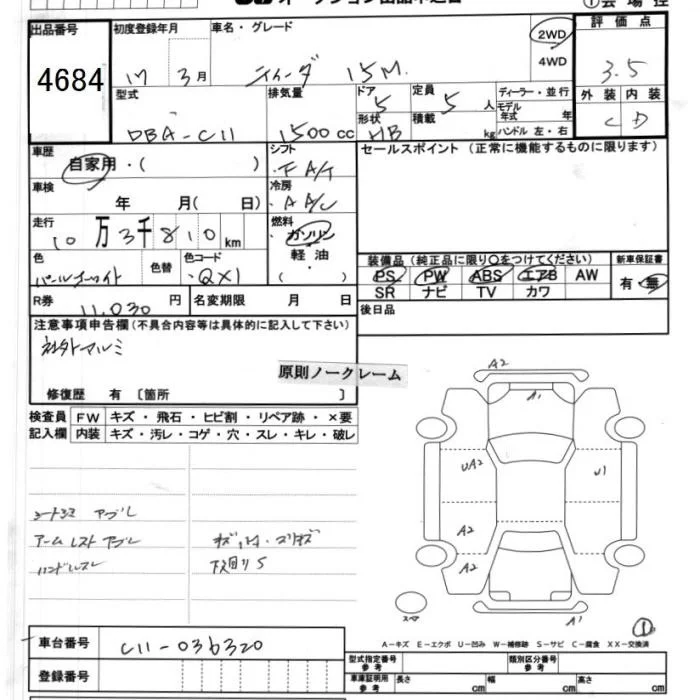 出品番号
4684
初度登録年月
17 3月
車名・グレード
ティーダ 15M
2WD
4WD
評価点
3.5
外装 内装
C D
型式
DBA-C11
排気量
1500cc
ドア
5
形状
HB
定員
5人
積載
kg
ディーラー・並行
モデル年式 年
ハンドル 左・右
車歴
自家用・( )
シフト
F A/T
セールスポイント (正常に機能するものに限ります)
車検
年 月( 日)
冷房
A A/C
走行
10万3千810km
燃料
ガソリン
軽油
( ・ )
色
パールホワイト
色替
色コード
QX1
装備品(純正品に限り○をつけてください)
PS PW ABS エアB AW
SR ナビ TV カワ
新車保証書
有・無
R券
11,030円
名変期限 月 日
後日品
注意事項申告欄(不具合内容等は具体的に記入して下さい)
社外アルミ
原則ノークレーム
修復歴 有 〔箇所 〕
検査員
記入欄
FW キズ・飛石・ヒビ割・リペア跡・×要
内装 キズ・汚レ・コゲ・穴・スレ・キレ・破レ
アームレスト
ハンドルスレ
下回りS
A2
A1
UA2
U1
A2
A2
スペア
A1
①
A-キズ E-エクボ U-凹み W-補修跡 S-サビ C-腐食 XX-交換済
車台番号
C11-036320
登録番号
型式指定番号
参考
類別区分番号
参考
車庫証明用
参考
長さ cm
幅 cm
高さ cm